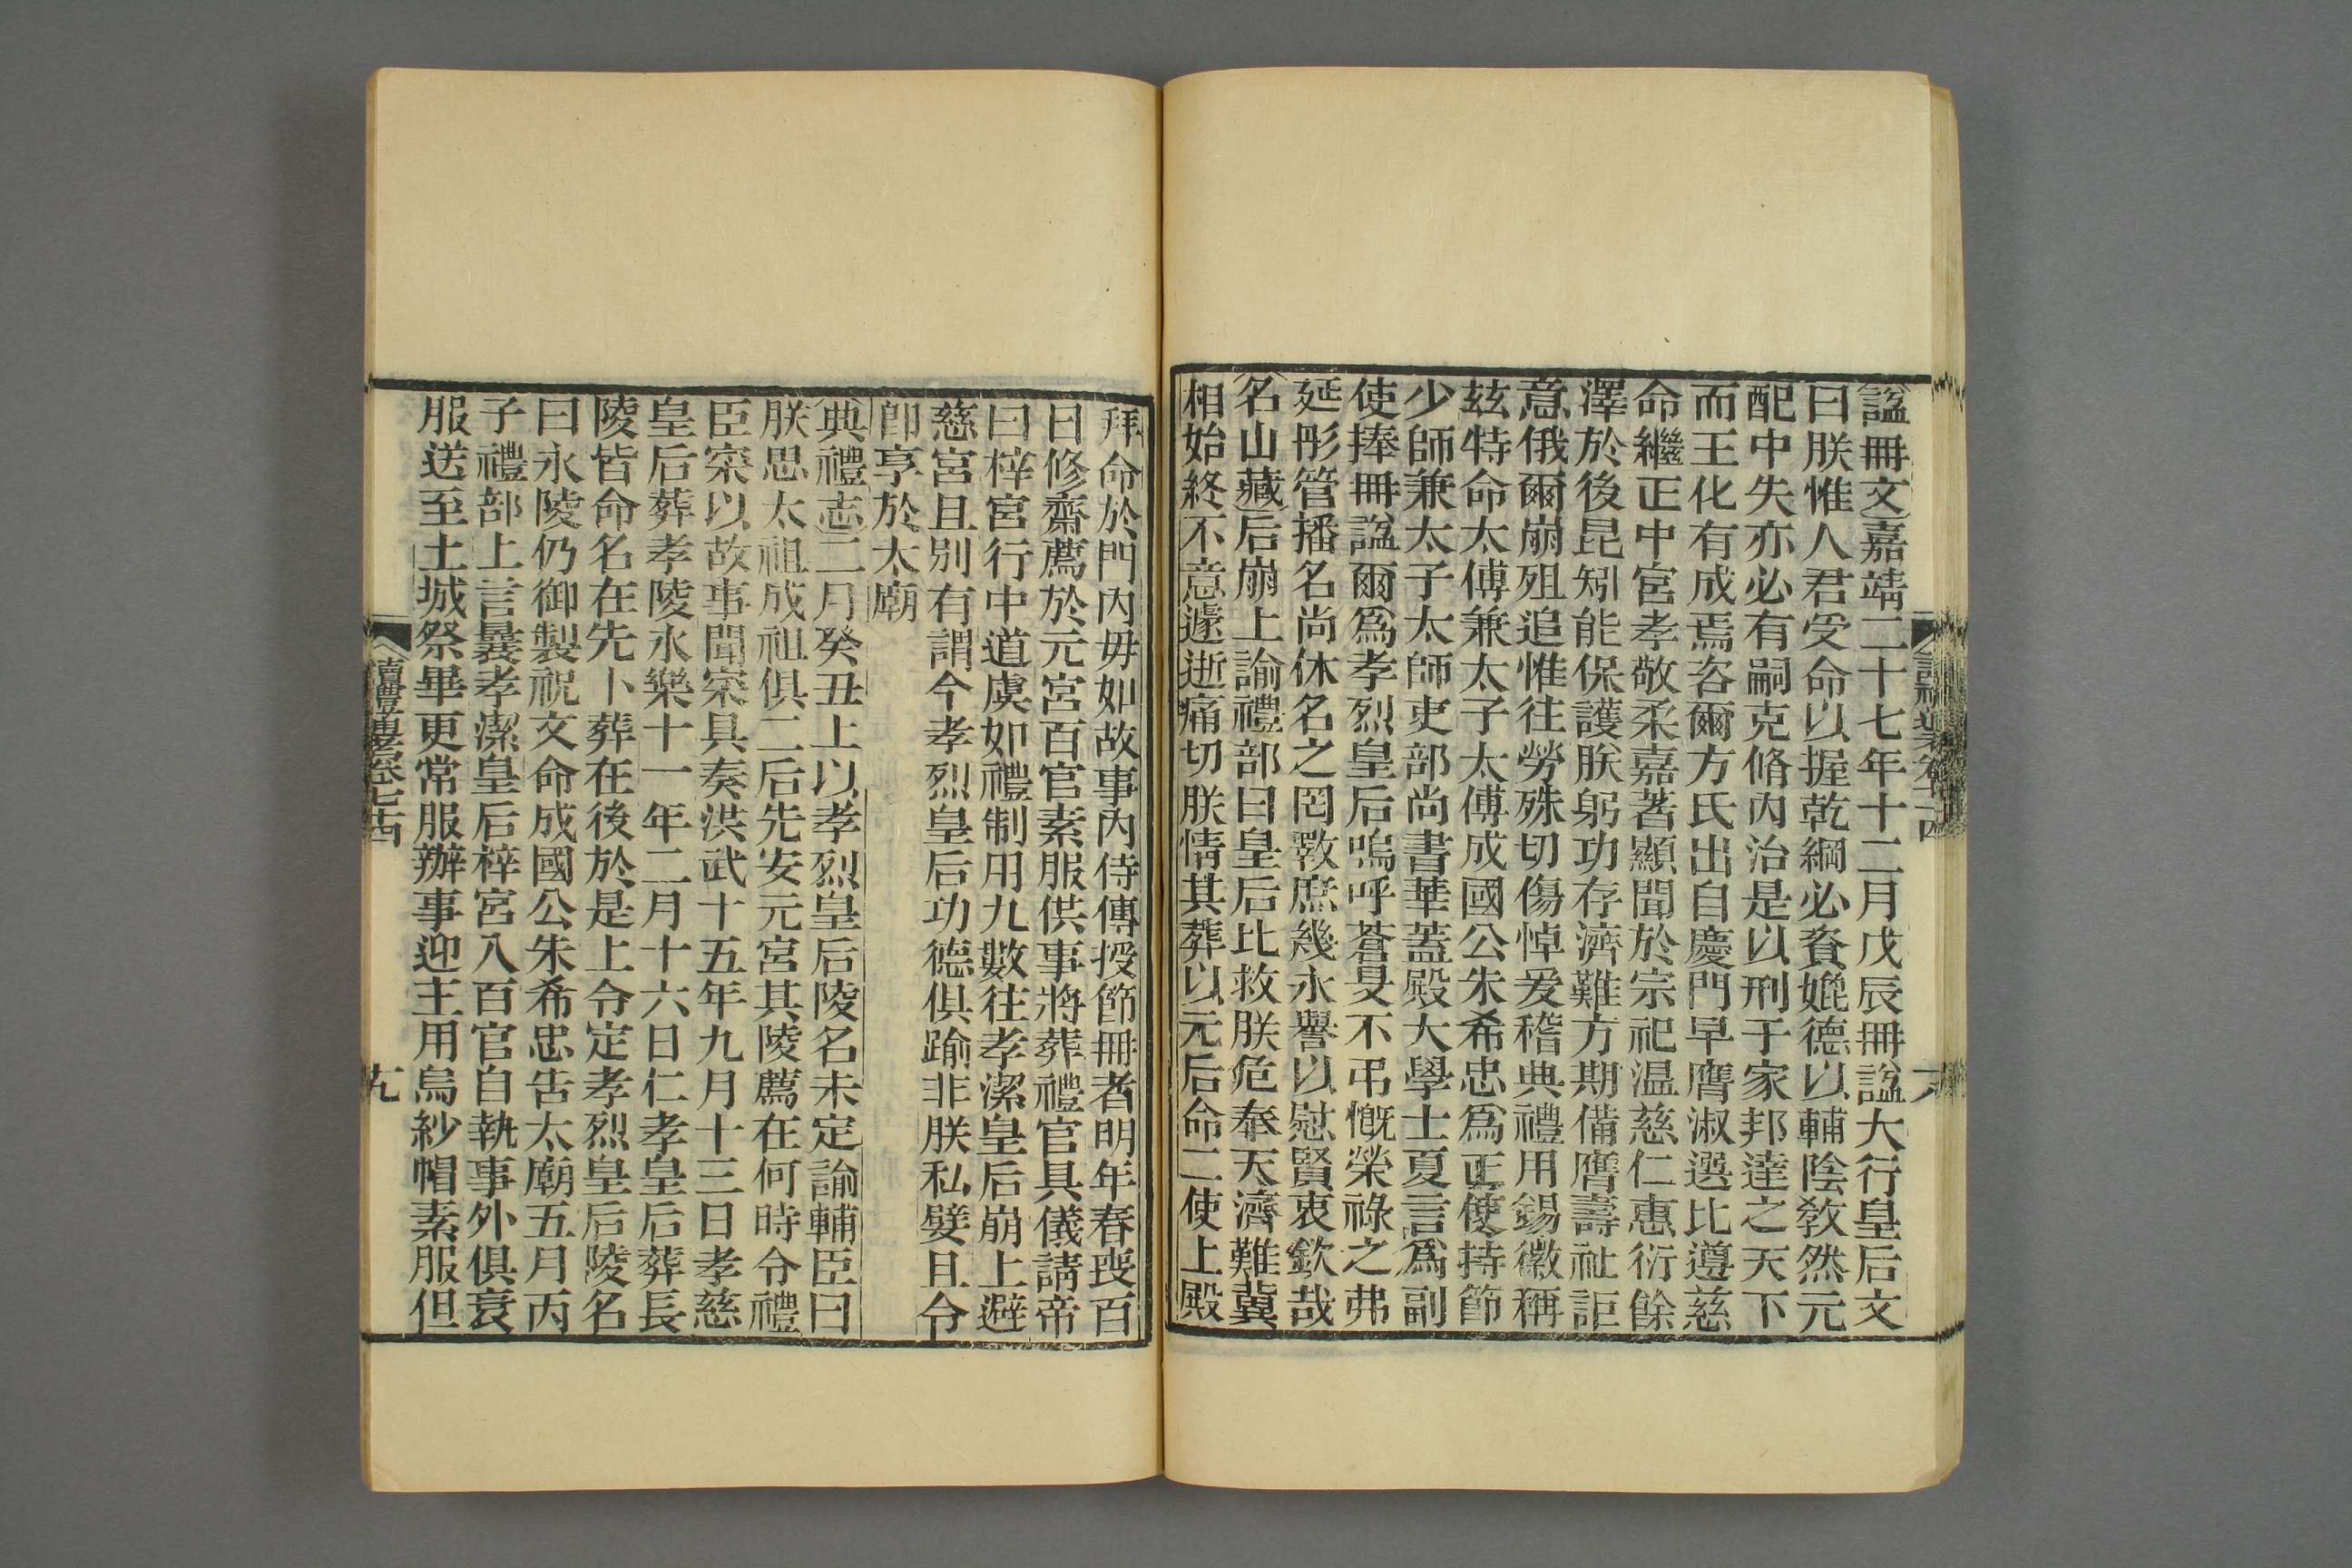 諡冊文嘉靖二十七年十二月戊辰冊諡大行皇后文
曰朕惟人君受命以握乾綱必資媲德以輔陰敎然元
配中失亦必有嗣克脩內治是以刑于家邦達之天下
而王化有成焉咨爾方氏出自慶門早膺淑選比遵慈
命繼正中宮孝敬柔嘉著顯聞於宗祀温慈仁惠衍餘
澤於後昆矧能保護朕躬功存濟難方期備膺壽祉詎
意俄爾崩殂追惟往勞殊切傷悼爰稽典禮用錫徽稱
玆特命太傅兼太子太傅成國公朱希忠爲正使持節
少師兼太子太師吏部尚書華蓋殿大學士夏言爲副
使捧冊諡爾爲孝烈皇后嗚呼蒼旻不弔慨榮祿之弗
延彤管播名尚休名之罔斁庶幾永譽以慰賢衷欽哉
名山藏后崩上諭禮部曰皇后比救朕危奉天濟難冀
相始終不意遽逝痛切朕情其葬以元后命二使上殿
拜命於門內毋如故事內侍傳授節冊者明年春喪百
日修齋薦於元宮百官素服供事將葬禮官具儀請帝
曰梓宮行中道虞如禮制用九數往孝潔皇后崩上避
慈宮且別有謂今孝烈皇后功德俱踰非朕私嬖且令
卽亨於太廟
典禮志二月癸丑上以孝烈皇后陵名未定諭輔臣曰
朕思太祖成祖俱二后先安元宮其陵薦在何時令禮
臣寀以故事聞寀具奏洪武十五年九月十三日孝慈
皇后葬孝陵永樂十一年二月十六日仁孝皇后葬長
陵皆命名在先卜葬在後於是上令定孝烈皇后陵名
曰永陵仍御製祝文命成國公朱希忠告太廟五月丙
子禮部上言曩孝潔皇后梓宮入百官自執事外俱衰
服送至土城祭畢更常服辦事迎主用烏紗帽素服但
讀禮通考卷七十四
九